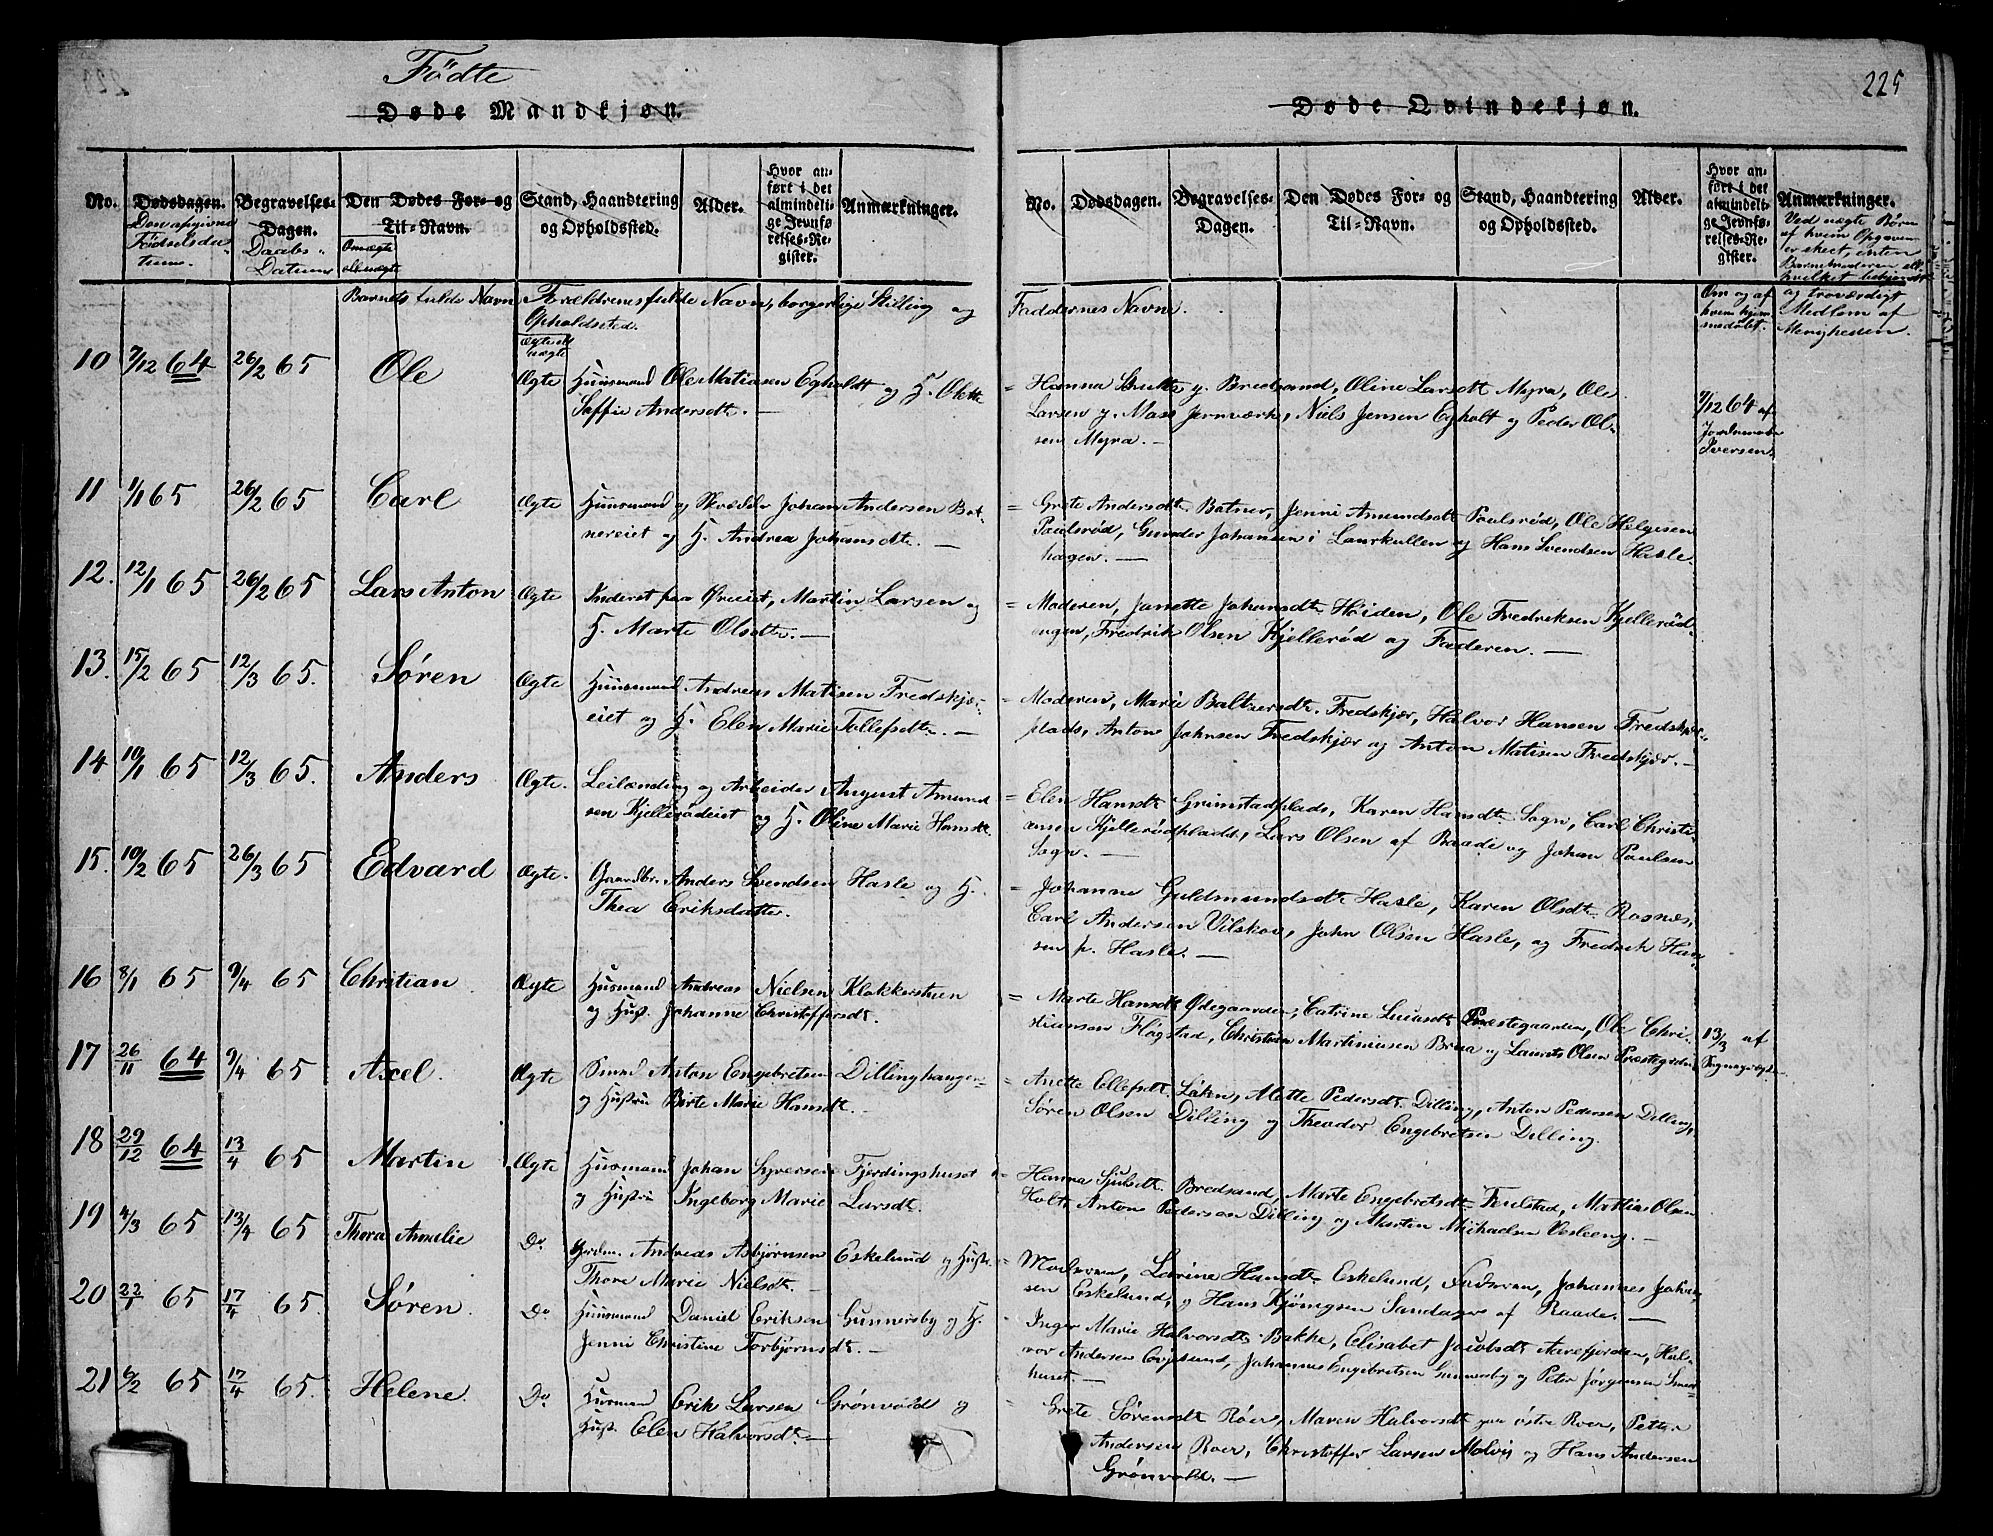 Födte
225
Døde Mandkjøn.
Døde Qvindekjøn.
No. Dødsdagen. Begravelses-Dagen. Den Dødes For- og Til-Navn. Stand, Haandtering og Opholdssted. Alder. Hvor anført i det almindelige Jevnførelses-Register. Anmærkninger.
Fødselsdatum Daabs-Datum
No. Dødsdagen. Begravelses-Dagen. Den Dødes For- og Til-Navn. Stand, Haandtering og Opholdssted. Alder. Hvor anført i det almindelige Jevnførelses-Register. Anmærkninger.
Ved uægte Børn
af hvem Opgaven
er skeet, enten
Barnets fulde Navn Forældrenes fulde Navn, borgerlige Stilling og
Opholdssted.
Faddernes Navne.
Om og af
hvem hjem-
medøbt.
og troværdigt
Medlem af
Menigheden.
10 7/12 64 26/2 65 Ole Ægte Huusmand Ole Matiasen Egholdt og H. Olette
Soffie Andersdt. —
= Hanna y. Bredsand, Oline Larsdt Myra, Ole
Larsen y. Moss Jernværk, Niels Jensen Egholt og Peder Ol-
sen Myra. —
7/12 64 af
Iversen
11 1/1 65 26/2 65 Carl Ægte Huusmand og Skrædder Johan Andersen Bat-
nereiet og H. Andrea Johansdt. —
= Grete Andersdt. Batner, Jenni Amundsdt Paulsrød, Ole Helgesen
Paulsrød, Gunder Johansen i Laurkullen og Hans Svendsen Hasle
hagen. —
12. 12/1 65 26/2 65 Lars Anton Ægte Inderst paa Øreiet, Martin Larsen og
H. Marte Olsdt. —
= Moderen, Janette Johansdt Höiden, Ole Fredriksen Kjellerød-
engen, Fredrik Olsen Kjellerød og Faderen. —
13. 15/2 65 12/3 65. Søren Ægte Huusmand Andreas Matisen Fredskjær-
eiet og H. Elen Marie Tollefsdt. —
= Moderen, Marie Baltzersdt. Fredskjær, Halvor Hansen Fredskjær-
plads, Anton Johnsen Fredskjær og Anton Matisen Fredskjær. —
14 10/1 65 12/3 65. Anders Ægte. Leilænding og Arbeider August Amund
sen Kjellerødeiet og H. Oline Marie Hansdt.
= Elen Hansdt Grimstadplads, Karen Hansdt. Sogn, Carl Christi-
ansen Kjellerødpladt, Lars Olsen af Raade og Johan Paulsen
Sogn. —
15. 10/2 65 26/3 65 Edvard Ægte. Gaardbr. Anders Svendsen Hasle og H.
Thea Eriksdatter.
= Johanne Guldsmundsdt Hasle, Karen Olsdt. Rosnæs,
Carl Andersen Vilskov, John Olsen Hasle, og Fredrik Han-
sen p. Hasle. —
16 8/1 65 9/4 65 Christian Ægte Husmand Andreas Nielsen Klokkerstuen
og Hust. Johanne Christoffersdt.
= Marte Hansdt Ødegaarden, Catrine Præstegaarden, Ole Chri-
stiansen Høgstad, Christian Martiniusen Brua og Laurits Olsen Præstegrden
13/3 af
17 26/11 64 9/4 65 Axel. Ægte Smed Anton Engebretsen Dillinghaugen
og Hustru Birte Marie Hansdt. —
= Anette Ellefsdt. Løken, Mette Pedersdt. Dilling, Anton Pedersen Dilling,
Søren Olsen Dilling og Theodor Engebretsen Dilling.
18 29/12 64 13/4 65 Martin Ægte Husmand Johan Syversen Fjerdingshuset
og Hustru Ingeborg Marie Larsdt.
= Hanna Bredsand, Marte Engebretsdt. Feulstad, Mathias Olsen
Holt, Anton Pedersen Dilling og Martin Michaelsen Vesleeng. —
19 4/3 65 13/4 65 Thora Amalie Do Andreas Asbjørnsen Eskelund og Hust.
Thore Marie Nielsdt.
= Moderen, Larine Hansdt. Eskelund, Faderen, Johannes Johan-
sen Eskelund, og Hans Kjønigsen Sandager af Raade. —
20 22/1 65 17/4 65. Søren. Do. Huusmand Daniel Eriksen Gunnersby og H.
Jenni Christine Torbjørnsdt. —
- Inger Marie Halvorsdt. Bakke, Elisabet Jacobsdt Aarefjorden, Hal-
vor Andersen , Johannes Engebretsen Gunnersby og Peter Jørgensen
huset. —
21 6/2 65 17/4 65. Helene. Do. Husmand Erik Larsen Grønvold og
Hust. Elen Halvorsdt. —
- Grete Sørensdt Röer, Maren Halvorsdt paa østre Roer, Petter
Andersen Roer, Christoffer Larsen Molvig og Hans Andersen
Grønvold. —